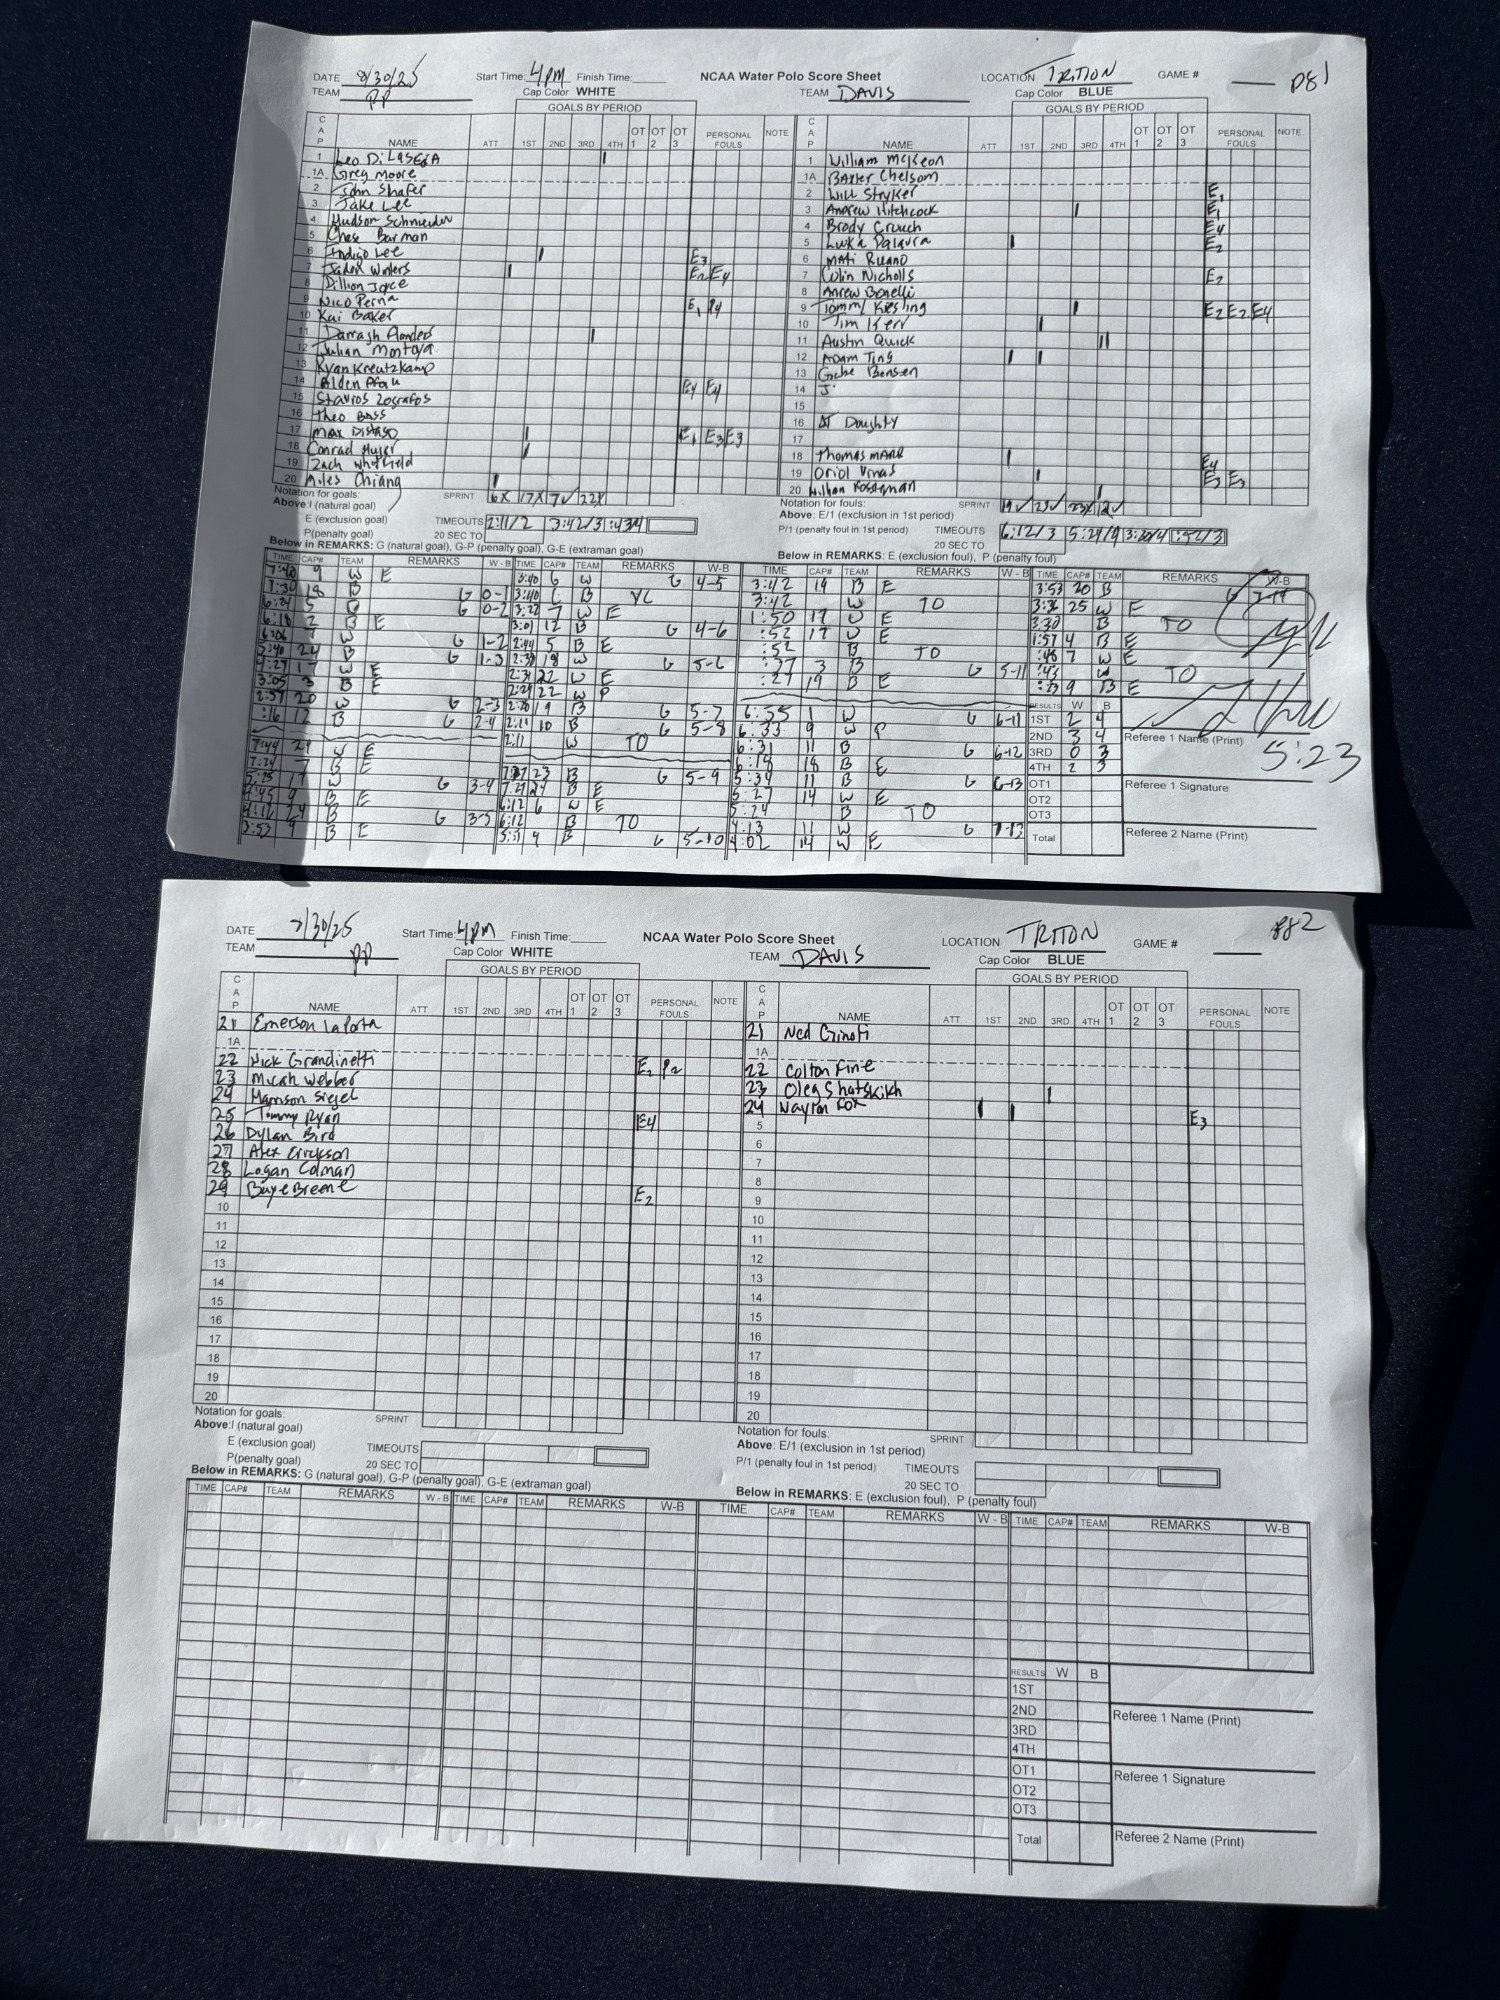 DATE 8/30/25 Start Time: 4pm Finish Time: NCAA Water Polo Score Sheet LOCATION TRITON GAME # pg 1
TEAM PP Cap Color WHITE TEAM DAVIS Cap Color BLUE
GOALS BY PERIOD GOALS BY PERIOD
CAP NAME ATT 1ST 2ND 3RD 4TH OT 1 OT 2 OT 3 PERSONAL FOULS NOTE CAP NAME ATT 1ST 2ND 3RD 4TH OT 1 OT 2 OT 3 PERSONAL FOULS NOTE
1 Leo 1 William McKeon
1A Greg Moore 1A Baxter Chelsom
2 John Shafer 2 Will Stryker E1
3 Jake Lee 3 Andrew Hitchcock I E1
4 Hudson 4 Brody Crouch E4
5 Chase Barman 5 Luka I E2
6 Indigo Lee I E3 6 Mati Ruano
7 Jaden Winters I E2 E4 7 Colin Nicholls E2
8 Dillion Joyce 8 Anrew Bonelli
9 Nico Perna E1 P4 9 Tommy Kiesling I E2 E2 E4
10 Kai Baker 10 Tim Kerr I
11 Darragh I 11 Austin Quick II
12 Julian Montoya 12 Adam Ting I I
13 Ryan Kreutzkamp 13 Gabe Bensen
14 Alden E4 E4 14 J
15 Stavros Zografos 15
16 Theo Bass 16 AJ Doughty
17 Max I E1 E3 E3 17
18 Conrad I 18 Thomas Mark I E4
19 Zach Whitfield 19 Oriol Vinas I E3 E3
20 Miles Chiang I 20 I
Notation for goals: SPRINT 6X 17X 7✓ 22X Notation for fouls: SPRINT 19✓ 23✓ 23X 12✓
Above: I (natural goal) Above: E/1 (exclusion in 1st period)
E (exclusion goal) TIMEOUTS 2:11/2 3:42/3 :43/4 P/1 (penalty foul in 1st period) TIMEOUTS 6:12/3 5:24/4 3:30/4 :52/3
P(penalty goal) 20 SEC TO 20 SEC TO
Below in REMARKS: G (natural goal), G-P (penalty goal), G-E (extraman goal) Below in REMARKS: E (exclusion foul), P (penalty foul)
TIME CAP# TEAM REMARKS W - B TIME CAP# TEAM REMARKS W-B TIME CAP# TEAM REMARKS W - B TIME CAP# TEAM REMARKS W-B
7:40 9 W E
7:30 18 B G 0-1
6:24 5 B G 0-2
6:18 2 B E
6:06 7 W G 1-2
5:40 24 B G 1-3
4:27 17 W E
3:05 3 B E
2:57 20 W G 2-3
:16 12 B G 2-4
7:44 29 W E
7:24 7 B E
5:25 17 W G 3-4
4:45 9 B E
4:12 24 B G 3-5
3:53 9 B E
3:40 6 W G 4-5
3:40 B YC
3:22 7 W E
3:01 12 B G 4-6
2:44 5 B E
2:39 18 W G 5-6
2:31 22 W E
2:24 22 W P
2:20 19 B G 5-7
2:11 10 B G 5-8
2:11 W TO
23 B G 5-9
7:21 24 B E
6:12 6 W E
6:12 B TO
5:51 9 B G 5-10
3:42 19 B E
3:42 W TO
1:50 17 W E
:52 17 W E
:52 B TO
:27 3 B G 5-11
:27 19 B E
6:55 1 W G 6-11
6:33 9 W P
6:31 11 B G 6-12
6:18 18 B E
5:39 11 B G 6-13
5:27 14 W E
5:24 B TO
4:13 11 W G 7-13
4:02 14 W E
3:53 20 B G 7-14
3:36 25 W E
3:30 B TO
1:57 4 B E
:48 7 W E
:43 W TO
:29 9 B E
RESULTS W B
1ST 2 4
2ND 3 4 Referee 1 Name (Print)
3RD 0 3 5:23
4TH 2 3
OT1 Referee 1 Signature
OT2
OT3
Total Referee 2 Name (Print)
DATE 8/30/25 Start Time: 4pm Finish Time: NCAA Water Polo Score Sheet LOCATION TRITON GAME # pg 2
TEAM PP Cap Color WHITE TEAM DAVIS Cap Color BLUE
GOALS BY PERIOD GOALS BY PERIOD
CAP NAME ATT 1ST 2ND 3RD 4TH OT 1 OT 2 OT 3 PERSONAL FOULS NOTE CAP NAME ATT 1ST 2ND 3RD 4TH OT 1 OT 2 OT 3 PERSONAL FOULS NOTE
21 Emerson LaPorta 21 Ned
1A 1A
22 Nick Grandinetti E2 P2 22 Colton Fine
23 Micah Webber 23 Oleg Shatskikh I
24 Siegel 24 Fox I I E3
25 Tommy Ryan E4 5
26 Dylan Bird 6
27 Alex Erickson 7
28 Logan Colman 8
29 Baye Breene E2 9
10 10
11 11
12 12
13 13
14 14
15 15
16 16
17 17
18 18
19 19
20 20
Notation for goals: SPRINT Notation for fouls: SPRINT
Above: I (natural goal) Above: E/1 (exclusion in 1st period)
E (exclusion goal) TIMEOUTS P/1 (penalty foul in 1st period) TIMEOUTS
P(penalty goal) 20 SEC TO 20 SEC TO
Below in REMARKS: G (natural goal), G-P (penalty goal), G-E (extraman goal) Below in REMARKS: E (exclusion foul), P (penalty foul)
TIME CAP# TEAM REMARKS W - B TIME CAP# TEAM REMARKS W-B TIME CAP# TEAM REMARKS W - B TIME CAP# TEAM REMARKS W-B
RESULTS W B
1ST
2ND Referee 1 Name (Print)
3RD
4TH
OT1 Referee 1 Signature
OT2
OT3
Total Referee 2 Name (Print)